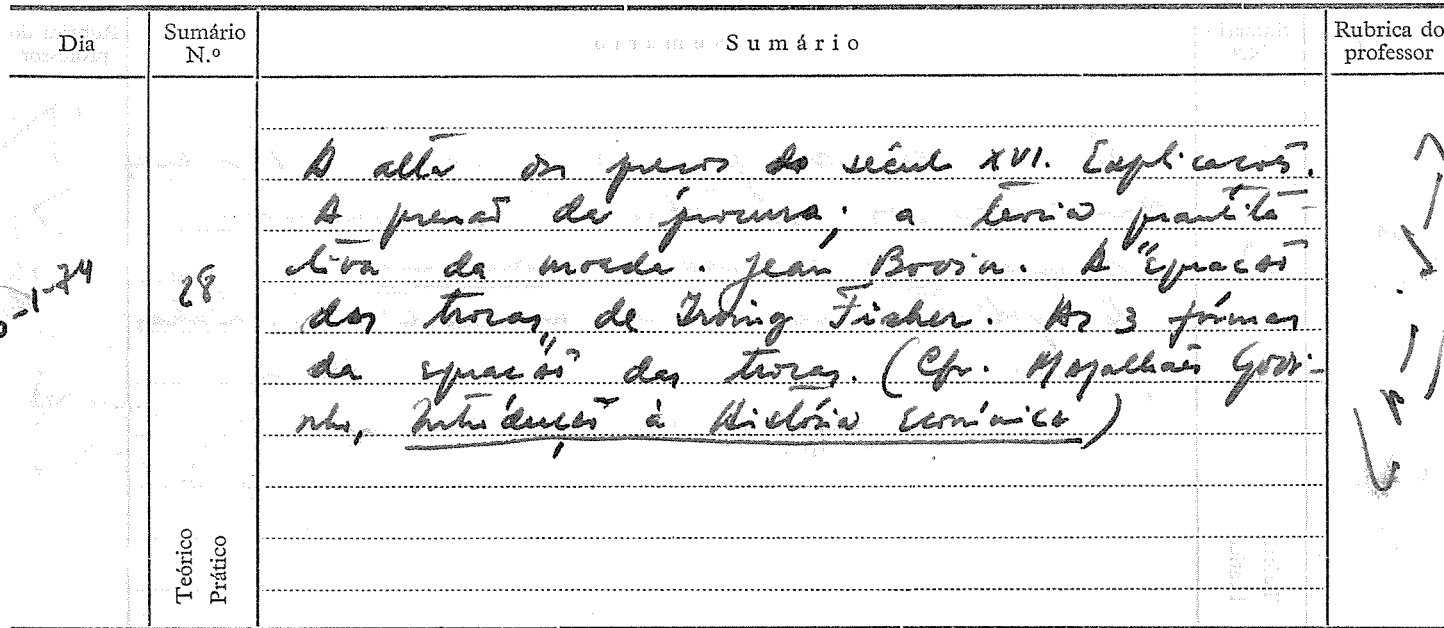 Dia
Sumário
N.º
Sumário
Rubrica do
professor
A alta dos preços do século XVI. Explicações.
A pressão da procura; a teoria quantita-
tiva da moeda. Jean Bodin. A "Equação
das trocas" de Irving Fisher. As 3 formas
da equação das trocas. (Cfr. Magalhães Godi-
nho, Introdução à História Económica)
-1-74
28
Teórico
Prático